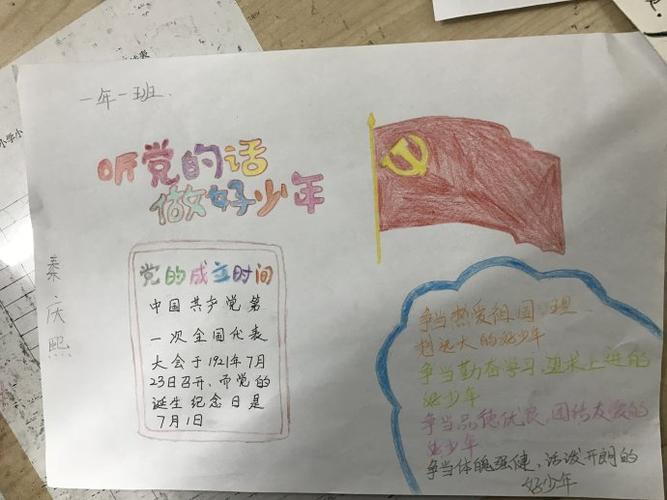 一年一班.
听党的话
做好少年
秦庆熙
党的成立时间
中国共产党第
一次全国代表
大会于1921年7月
23日召开、而党的
诞生纪念日是
7月1日
争当热爱祖国、理
想远大的好少年
争当勤奋学习、追求上进的
好少年
争当品德优良、团结友爱的
好少年
争当体魄强健、活泼开朗的
好少年